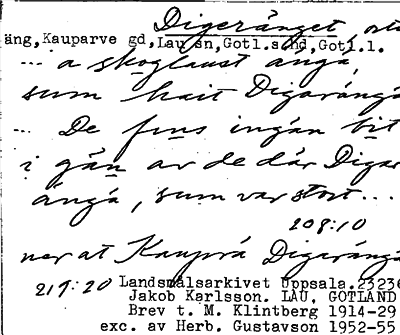 Digeränget, 
äng, Kauparve gd, Lau sn, Gotl.s nd, Gotl.l.
... a skoglaust ängä,
sum hait Digarängä
... De fins ingän bit
i gän av de där Digar
ängä, sum var stort...
208:10
nor at Kauprå Digarängä
219:20 Landsmålsarkivet Uppsala. 23236
Jakob Karlsson. LAU, GOTLAND
Brev t. M. Klintberg 1914-29
exc. av Herb. Gustavson 1952-55